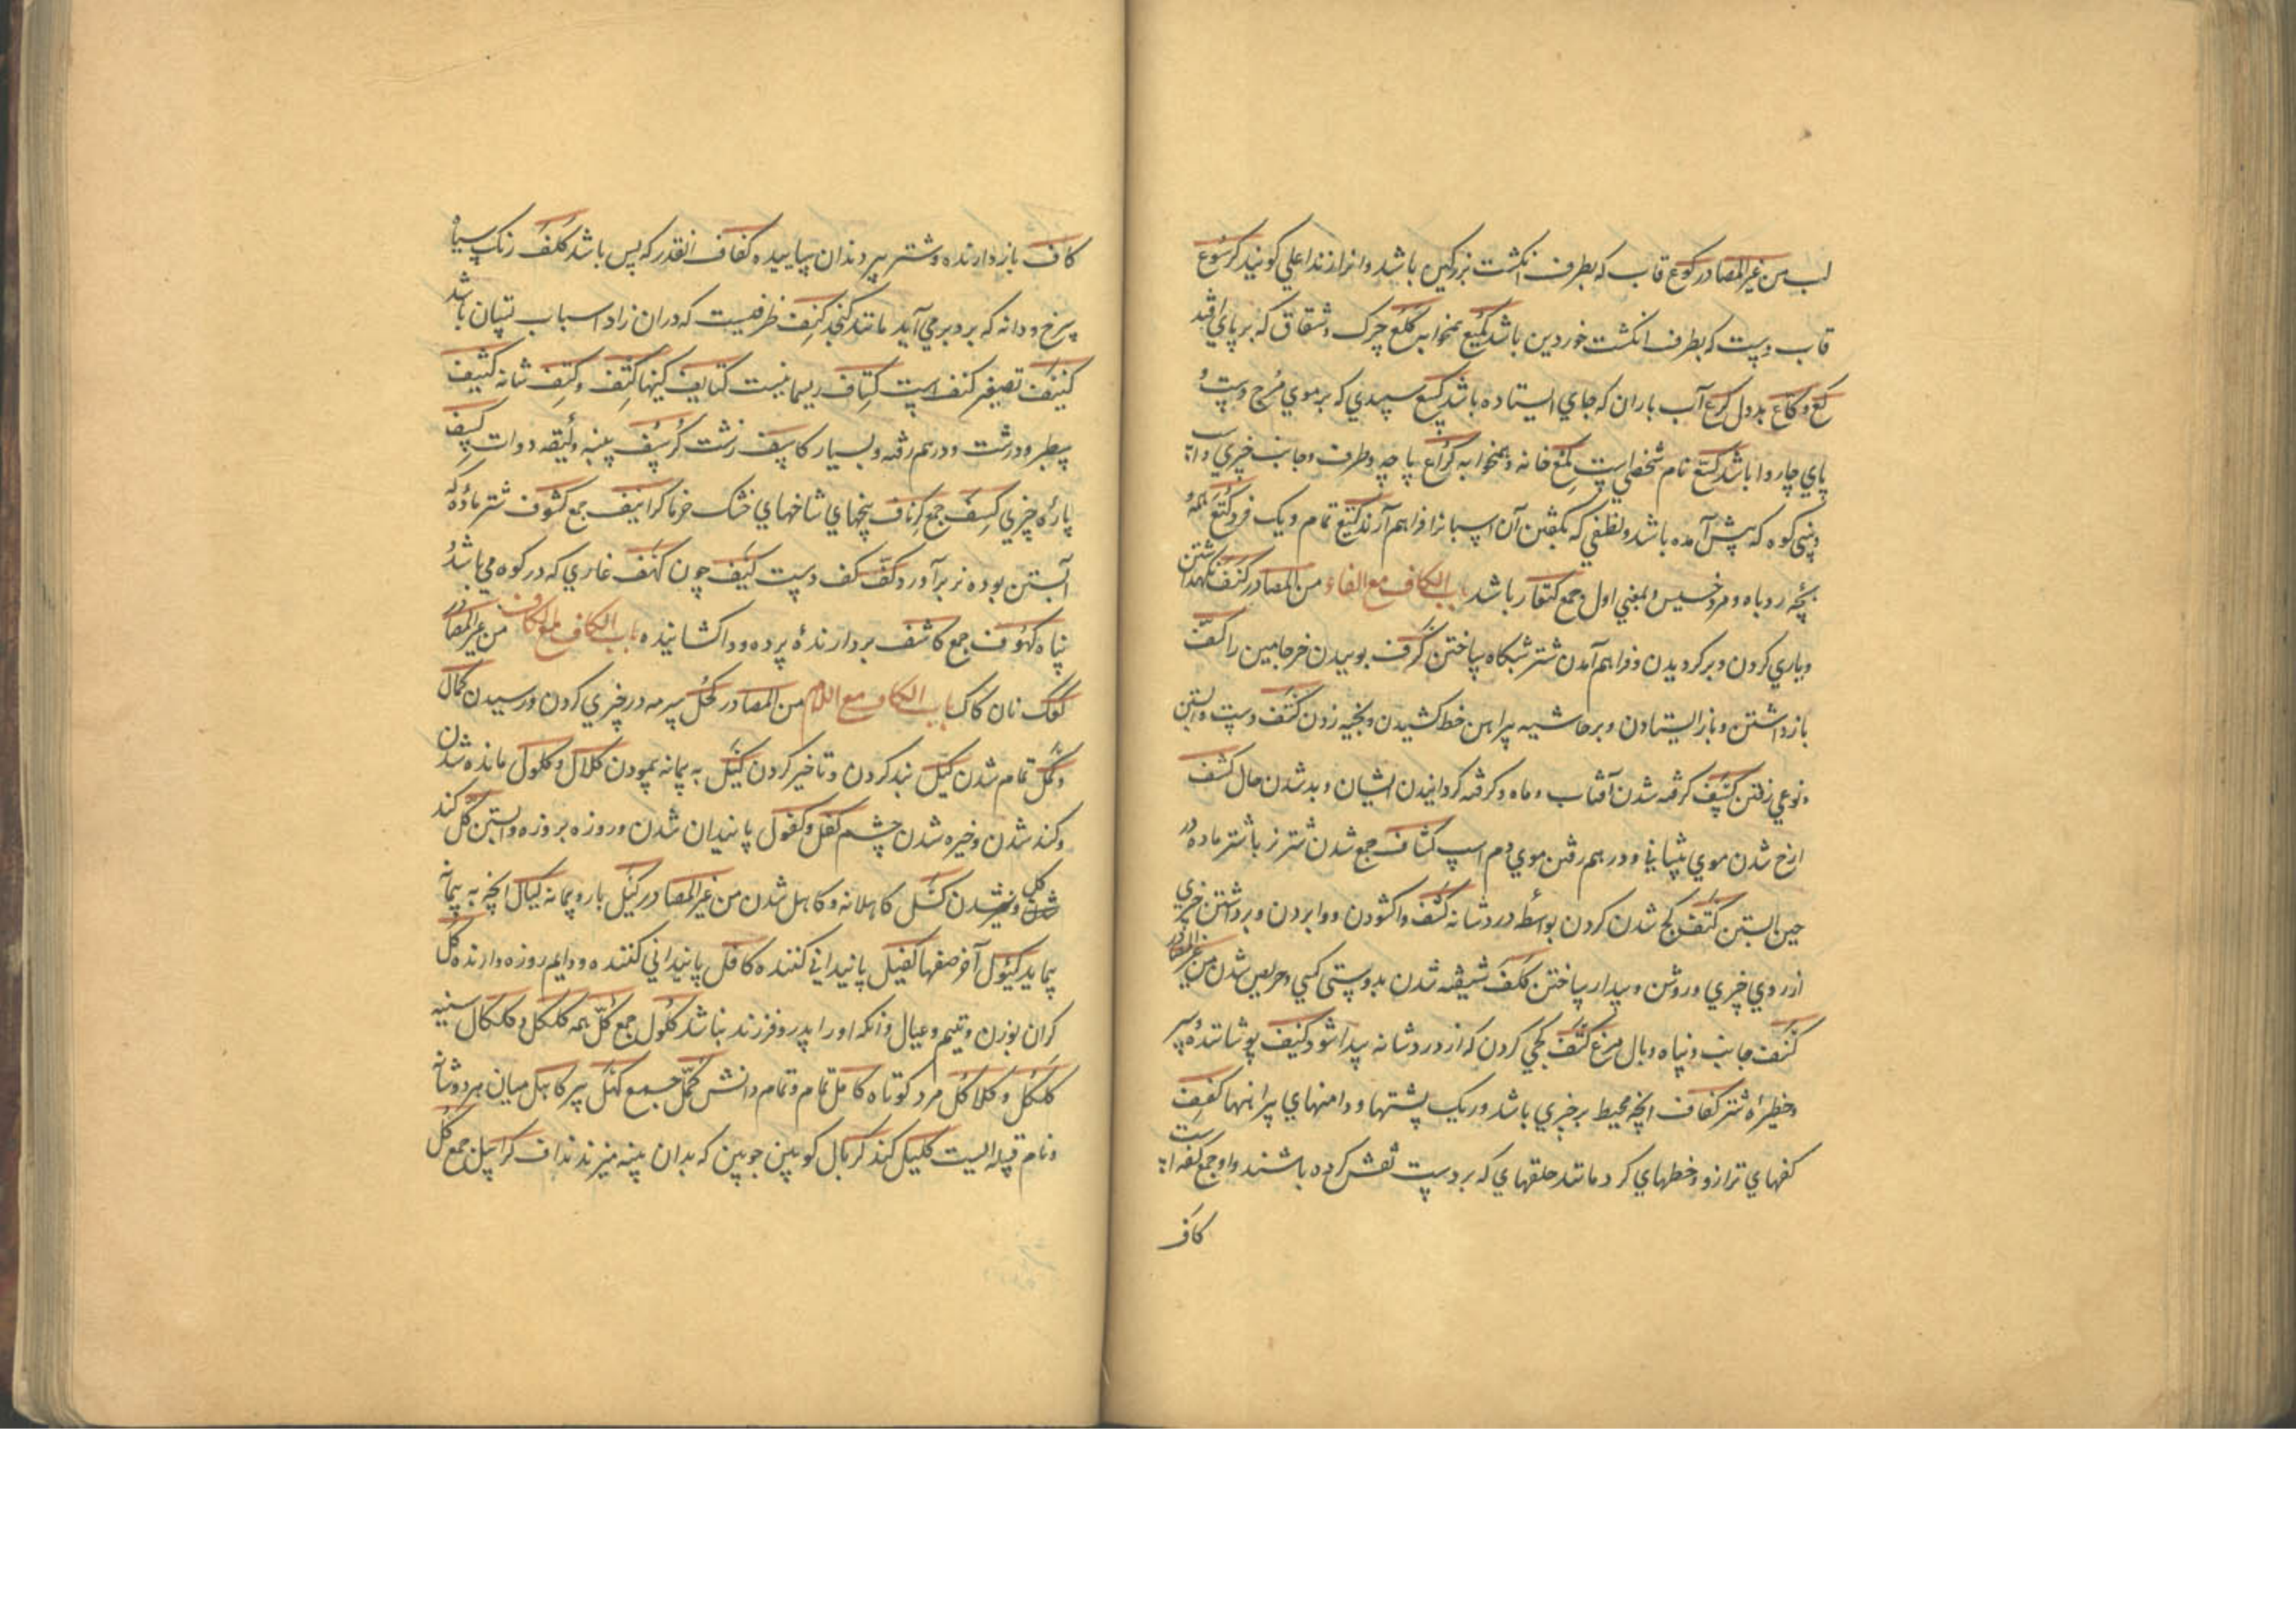 لب من غیر المصادر کوع قاب که بطرف انکشت بزرکین باشد وانرا زند اعلی کویند کرسوع
قاب دست که بطرف انکشت خوردین باشد کمیع همخوابه کلع چرک وشقاق که بر پای افتد
کع وکاع بددل کرع آب باران که جای ایستاده باشد کسع سپیدی که بر موی دست و
پای چاروا باشد کتع نام شخصی است کمع خانه وهمخوابه کراع پاچه وطرف وجانب چیزی
وبینی کوه که پیش آمده باشد ولفظی که بکفتن آن اسپانرا فراهم آرند کتیع تمام ویک فرد کتع همه و
بچه روباه ومرد خسیس وبمعنی اول جمع کتعان باشد باب الکاف مع الفاء من المصادر کنف نکهداشتن
ویاری کردن وبرکردیدن وفراهم آمدن شتر شبکاه ساختن کرف بوییدن خر جامین را کف
بازداشتن وباز ایستادن وبر حاشیه پیراهن خط کشیدن وبخیه زدن کتف دست وابستن
ونوعی رفتن کسف کرفته شدن آفتاب وماه وکرفته کردانیدن ایشان وبد شدن حال کشف
ارخ شدن موی پیشانی ودرهم رفتن موی دم اسپ کشاف جمع شدن شتر نر با شتر ماده در
حین آبستن کتف کج شدن کردن بواسطه درد شانه کشف واکشودن ووابردن وبرداشتن چیزی
از روی چیزی وروشن وپیدا ساختن کلف شیفته شدن بدوستی کسی وحریص شدن من غیر المصادر
کنف جانب وپناه وبال مرغ کتف کجی کردن که از درد شانه پیدا شود کنیف پوشاننده وسپر
وخطیره شتر کفاف انچه محیط بر چیزی باشد وریک پشتها ودامنهای پیراهنها کفف
کفهای ترازو وخطهای کرد مانند حلقهای که بر دست نقش کرده باشند واو جمع کفه است
کاف
کاف بازدارنده وشتر پیر دندان ساییده کفاف انقدر که بس باشد کلف رنک سیاه
سرخ ودانه که بر رو بر می آید مانند کنجد کنف ظرفیست که دران زاد اسباب شبان باشد
کنیف تصغیر کنف است کتاف ریسمانیست کتایف کینها کتف وکتف شانه کثیف
سطبر ودرشت ودرهم رفته وبسیار کاسف زشت کرسف پنبه ولیقه دوات کسف
پاره چیزی کسف جمع کرناف بیخهای شاخهای خشک خرما کرانیف جمع کشوف شتر ماده که
آبستن بوده نر بر آورد کف کف دست کیف چون کهف غاری که در کوه می باشد و
پناه کهوف جمع کاشف بردارنده پرده وواکشانیده باب الکاف مع الکاف من غیر المصادر
کعک نان کاک باب الکاف مع اللام من المصادر کحل سرمه در چیزی کردن ورسیدن کمال
وکمل تمام شدن کبل بند کردن وتاخیر کردن کیل به پیمانه پیمودن کلال وکلول مانده شدن
وکند شدن وخیره شدن چشم کفل وکفول پایندان شدن وروزه بروزه وابستن کل کند
شدن کسل کاهلانه وکاهل شدن من غیر المصادر کیل بار وپیمانه کیال انچه به پیمانه
پیماید کیول آخر صفها کفیل پایندانی کننده کافل پایندانی کننده ودایم روزه دارنده کل
کران بوزن ویتیم وعیال وانکه اورا پدر وفرزند نباشد کلول جمع کل همه کلکل وکلکال سینه
کلکل وکلاکل مرد کوتاه کامل تمام وتمام دانش کمل جمع کهل پیر کاهل میان هر دو شانه
ونام قبیله ایست کلیل کند کربال کوبین چوبین که بدان پنبه میزند نداف کرابیل جمع کل